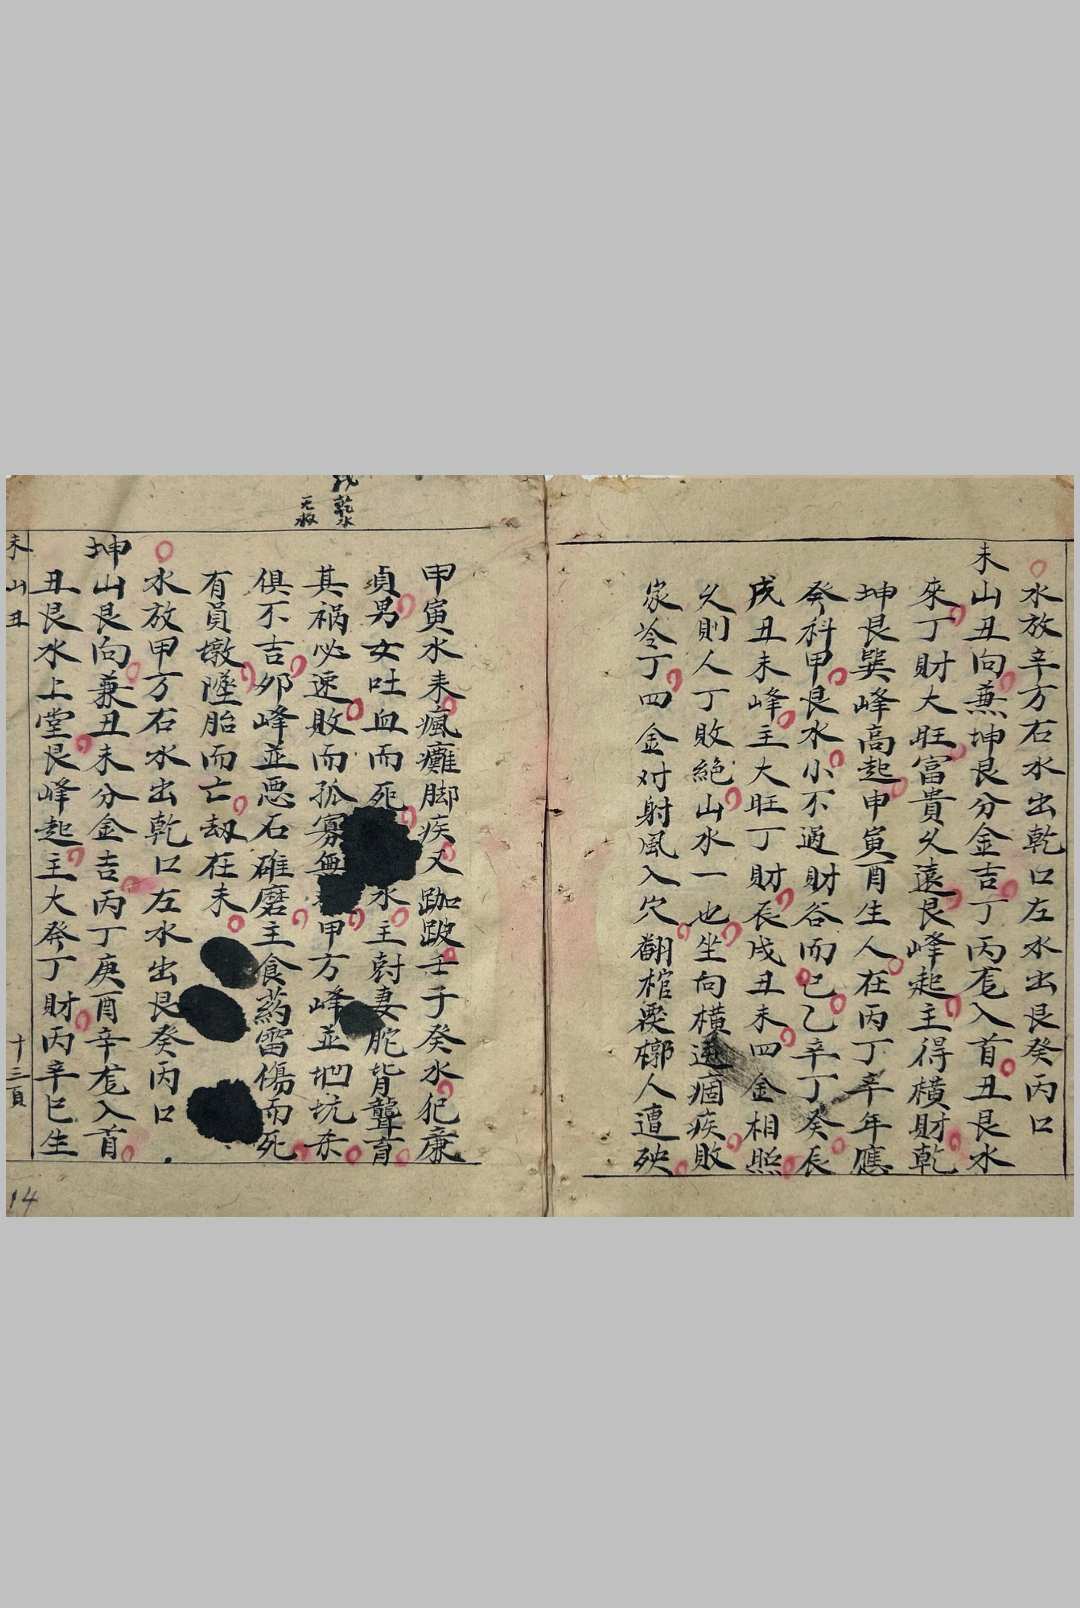 水放辛方右水出乾口左水出艮癸丙口
未山丑向蒹坤艮分金吉丁丙庚入首丑艮水
來丁財大旺富貴久遠艮峰起主得橫財乾
坤艮巽峰高起申寅酉生人在丙丁辛年應
癸科甲艮水小不過財谷而已乙辛丁癸辰
戌丑未峰主大旺丁財辰戌丑未四金相照
久則人丁敗絕山水一也坐向橫過痼疾敗
家冷丁四金对射風入穴翻棺槨人遭殃
甲寅水耒瘋癱脚疾又跏跛壬子癸水犯廉
貞男女吐血而死水主尅妻胣背聾盲
其祸必速敗而孤寡無甲方峰並凹坑杀
俱不吉夘峰並悪石碓磨主食药雷傷而死
有員墩墜胎而亡刼在未
水放甲方右水出乾口左水出艮癸丙口
坤山艮向兼丑未分金吉丙丁庚酉辛龙入首
丑艮水上堂艮峰起主大癸丁財丙辛巳生
戌乾水
无救
未山丑
十三頁
14